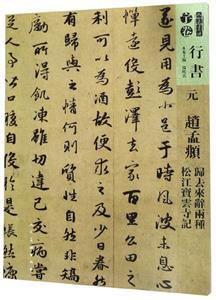 行書
元
趙孟頫
歸去來辭兩種
松江寶雲寺記
遂見用為小邑于時風波未靜心
憚遠役彭澤去家百里公田之
利足以為酒故便求之及少日眷然
有歸與之情何則質性自然非矯
勵所得飢凍雖切違己交病嘗
從人事皆口腹自役於是